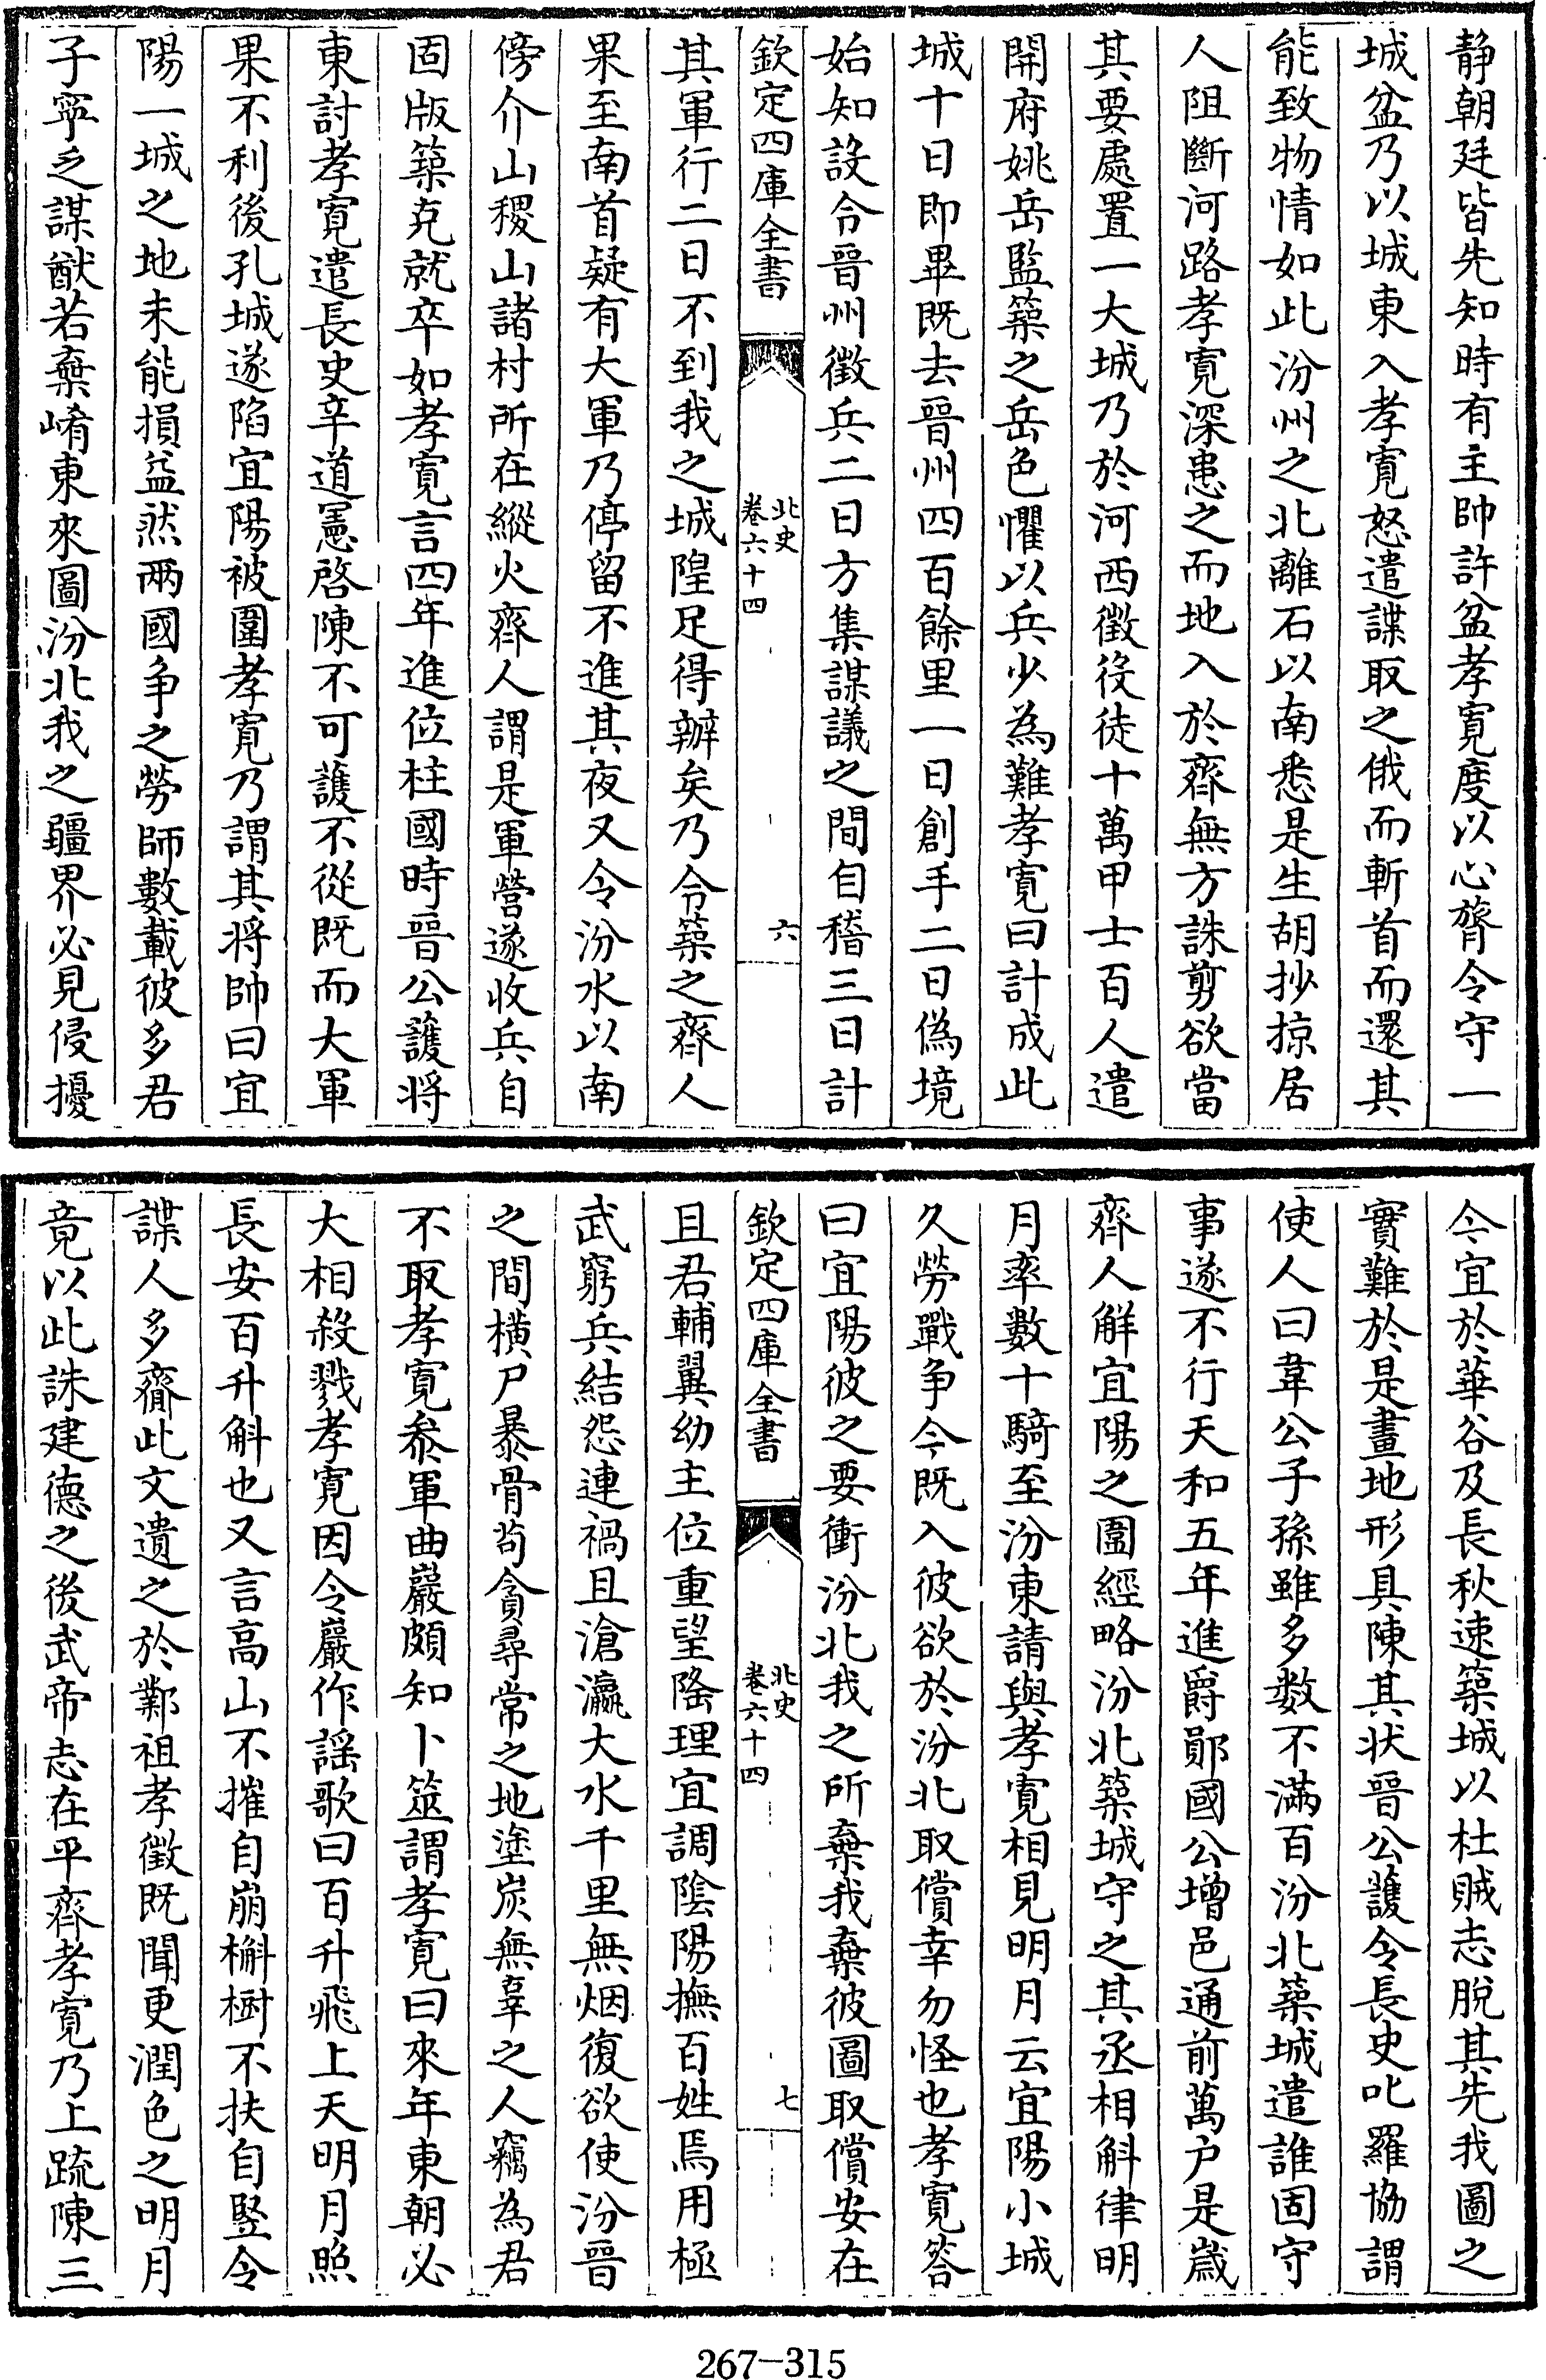 静朝廷皆先知時有主帥許盆孝寛度以心膂令守一
城盆乃以城東入孝寛怒遣諜取之俄而斬首而還其
能致物情如此汾州之北離石以南悉是生胡抄掠居
人阻斷河路孝寛深患之而地入於齊無方誅剪欲當
其要處置一大城乃於河西徵役徒十萬甲士百人遣
開府姚岳監築之岳色懼以兵少為難孝寛曰計成此
城十日即畢既去晉州四百餘里一日創手二日偽境
始知設令晉州徵兵二日方集謀議之間自稽三日計
欽定四庫全書
北史
卷六十四
六
其軍行二日不到我之城隍足得辦矣乃令築之齊人
果至南首疑有大軍乃停留不進其夜又令汾水以南
傍介山稷山諸村所在縱火齊人謂是軍營遂收兵自
固版築克就卒如孝寛言四年進位柱國時晉公護将
東討孝寛遣長史辛道憲啓陳不可護不從既而大軍
果不利後孔城遂陷宜陽被圍孝寛乃謂其将帥曰宜
陽一城之地未能損益然兩國争之勞師數載彼多君
子寧乏謀猷若棄崤東來圖汾北我之疆界必見侵擾
今宜於華谷及長秋速築城以杜賊志脫其先我圖之
實難於是畫地形具陳其状晉公護令長史叱羅協謂
使人曰韋公子孫雖多数不滿百汾北築城遣誰固守
事遂不行天和五年進爵鄖國公增邑通前萬户是歲
齊人解宜陽之圍經略汾北築城守之其丞相斛律明
月率數十騎至汾東請與孝寛相見明月云宜陽小城
久勞戰争今既入彼欲於汾北取償幸勿怪也孝寛答
曰宜陽彼之要衝汾北我之所棄我棄彼圖取償安在
欽定四庫全書
北史
卷六十四
七
且君輔翼幼主位重望隆理宜調陰陽撫百姓焉用極
武窮兵結怨連禍且滄瀛大水千里無烟復欲使汾晉
之間横尸暴骨茍貪尋常之地塗炭無辜之人竊為君
不取孝寛叅軍曲巖頗知卜筮謂孝寛曰來年東朝必
大相殺戮孝寛因令巖作謡歌曰百升飛上天明月照
長安百升斛也又言高山不摧自崩槲樹不扶自竪令
諜人多齎此文遺之於鄴祖孝徵既聞更潤色之明月
竟以此誅建德之後武帝志在平齊孝寛乃上疏陳三
267-315